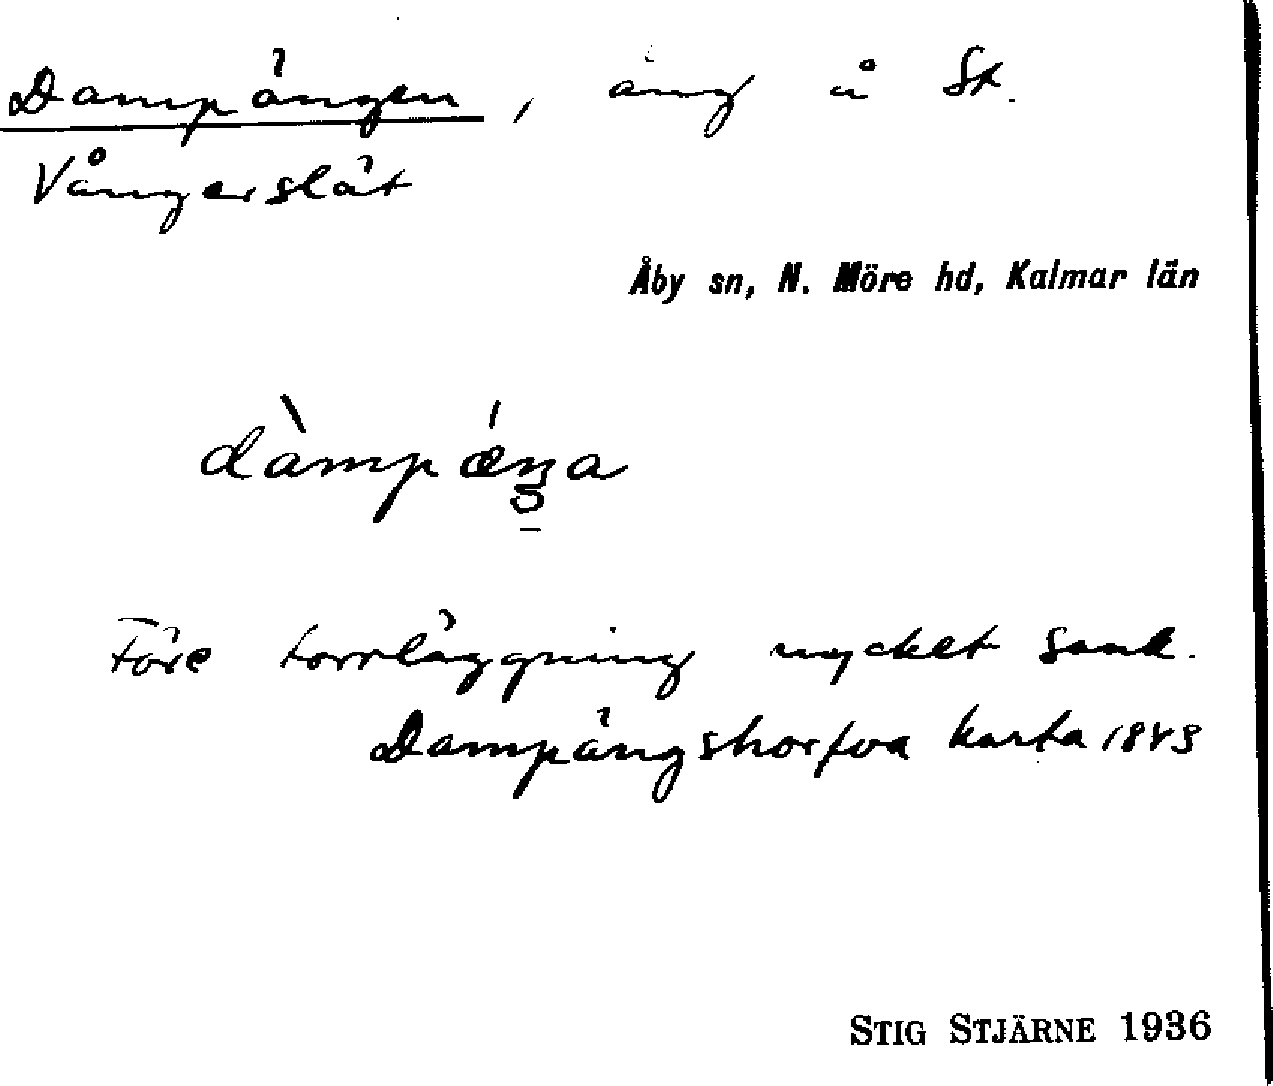 Dampängen, äng å St.
Vångerslät
Åby sn, N. Möre hd, Kalmar län
dàmpǽŋa
Före torrläggning mycket sank.
Dampängshorfva karta 1843
STIG STJÄRNE 1936